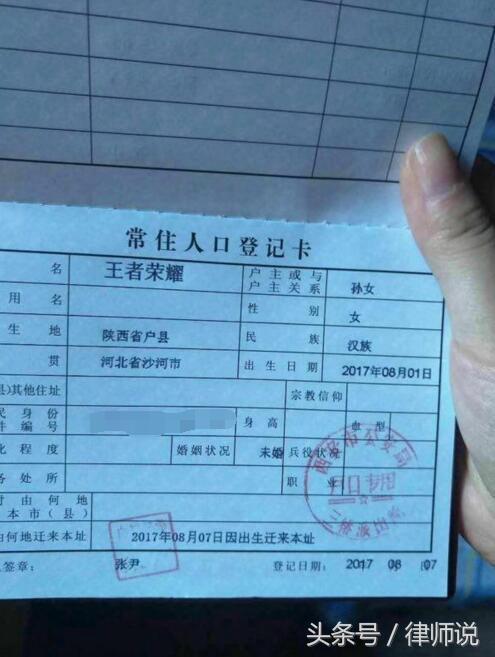 常住人口登记卡
名 王者荣耀 户主或与户主关系 孙女
用名 性别 女
生地 陕西省户县 民族 汉族
贯 河北省沙河市 出生日期 2017年08月01日
县)其他住址 宗教信仰
民身份件编号 身高 血型
化程度 婚姻状况 未婚 兵役状况
务处所 职业
时由何地本市(县)
由何地迁来本址 2017年08月07日因出生迁来本址
签章: 张尹 登记日期: 2017 08 07
西安市公安局
户口专用
头条号/律师说